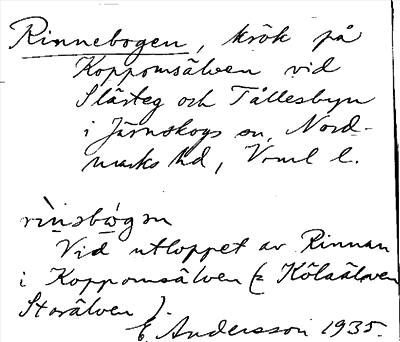 Rinnebogen, krök på
Koppomsälven vid
Slärteg och Tållesbyn
i Järnskogs sn, Nord-
marks hd, Vrml l.
rìnəbò̤gən
Vid utloppet av Rinnan
i Koppomsälven (= Kölaälven
Storälven).
E. Andersson 1935.